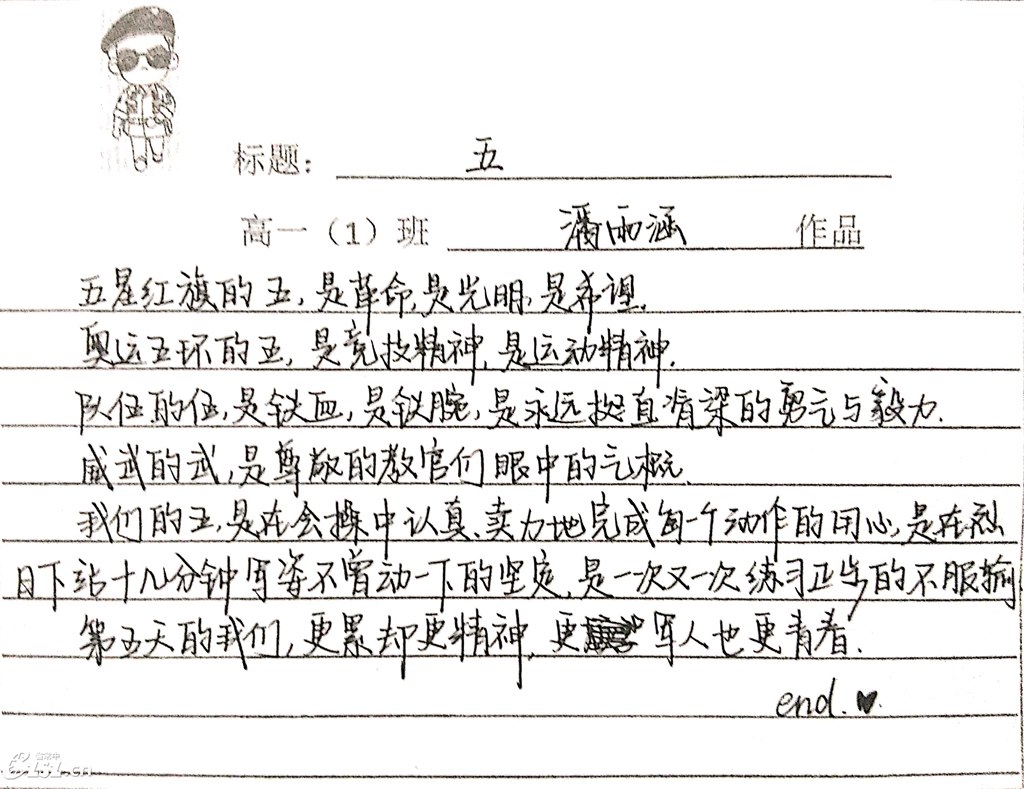 标题：五
高一（1）班 潘雨涵 作品
五星红旗的五，是革命，是光明，是希望．
奥运五环的五，是竞技精神，是运动精神．
队伍的伍，是铁血，是铁腕，是永远挺直脊梁的勇气与毅力．
威武的武，是尊敬的教官们眼中的气概．
我们的五，是在会操中认真、卖力地完成每一个动作的用心，是在烈
日下站十几分钟军姿不曾动一下的坚定，是一次又一次练习正步的不服输
第五天的我们，更累却更精神，更 军人也更青春．
end.♥